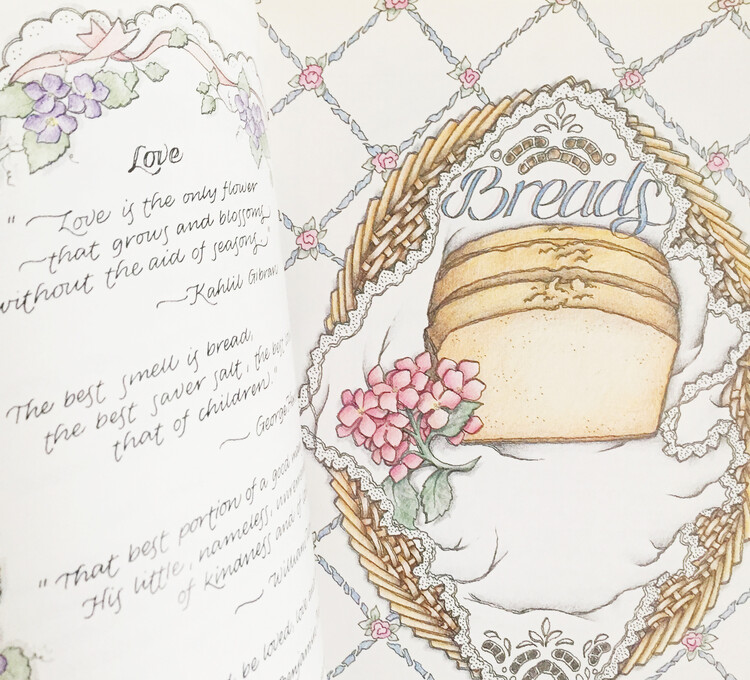 Love
"Love is the only flower
that grows and blossoms
without the aid of seasons."
—Kahlil Gibran
The best smell is bread,
the best saver salt, the best
that of children."
— George
"That best portion of a good
His little, nameless,
of kindness and of
— William
be loved, love
Benjamin
Breads